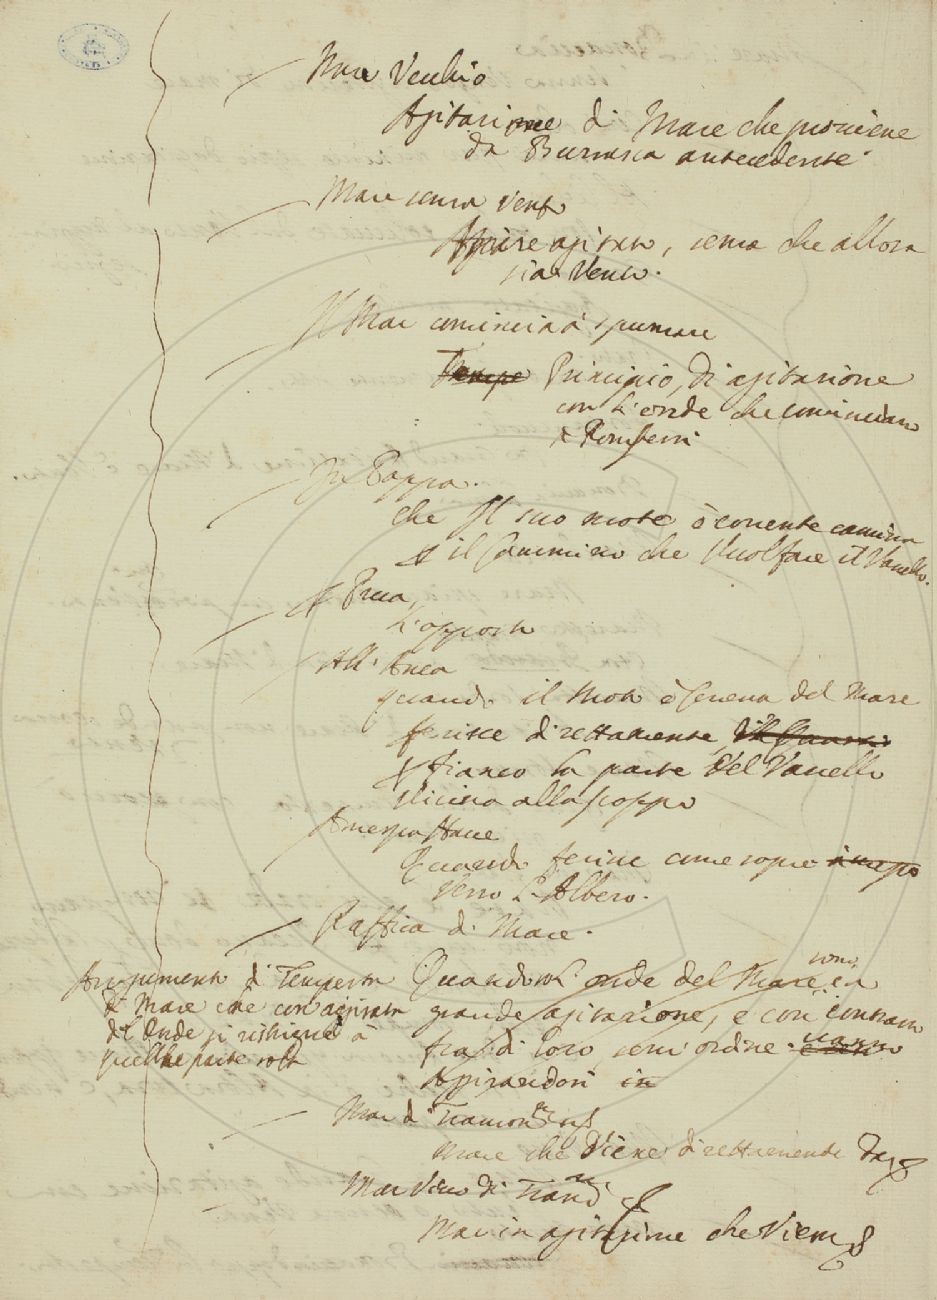 Mare Vecchio
Agitazione di Mare che proviene
da Burrasca antecedente.
Mare senza Vento
Mare agitato, senza che allora
sia Vento.
Il Mar comincia à spumare
Principio, di agitazione
con l'onde che cominciano
à Rompersi
In Poppa.
che il suo moto ò corrente camina
il Cammino che Vuol fare il Vassello.
Prua,
L'opposto
All' Anca
quando il moto del Mare
ferisce direttamente
fianco la parte del Vassello
Vicina alla poppa
Quando ferisce come sopra
verso l'Albero.
Raffica di Mare.
Quando l'onde del Mare sono in
grande agitazione, e con contrasto
fra di loro senz'ordine
Agirandosi in
Argumento di Tempesta
di Mare che con agitata
di Onde si ristringe à
quella parte sola
Mar di Tramontna
Mare che Viene direttamente da
Mar Vivo di Tramna
Mar in agitazione che Viene